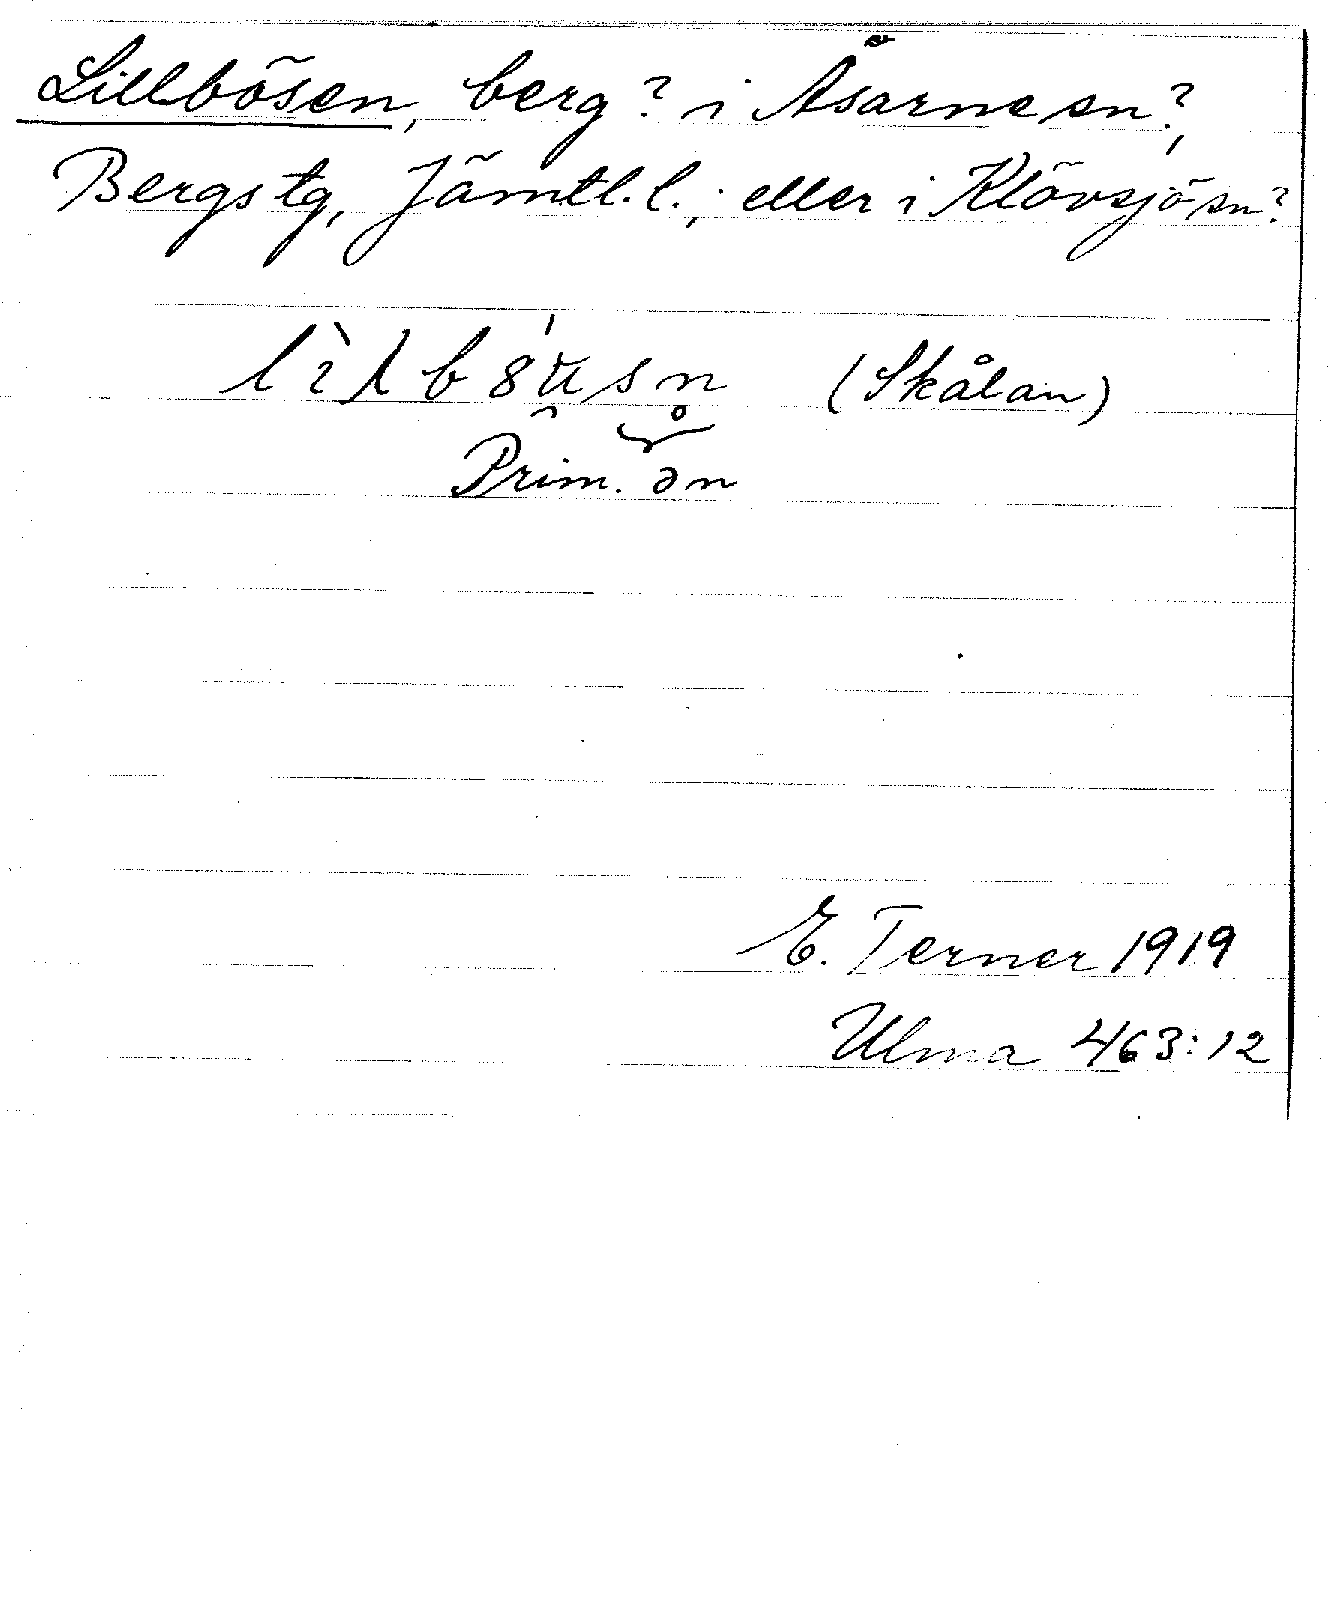 Lillbösen, berg? i Åsarne sn?,
Bergs tg, Jämtl. l.; eller i Klövsjö sn?
(Skålan)
Prim. ən
E. Terner 1919
Ulma 463:12